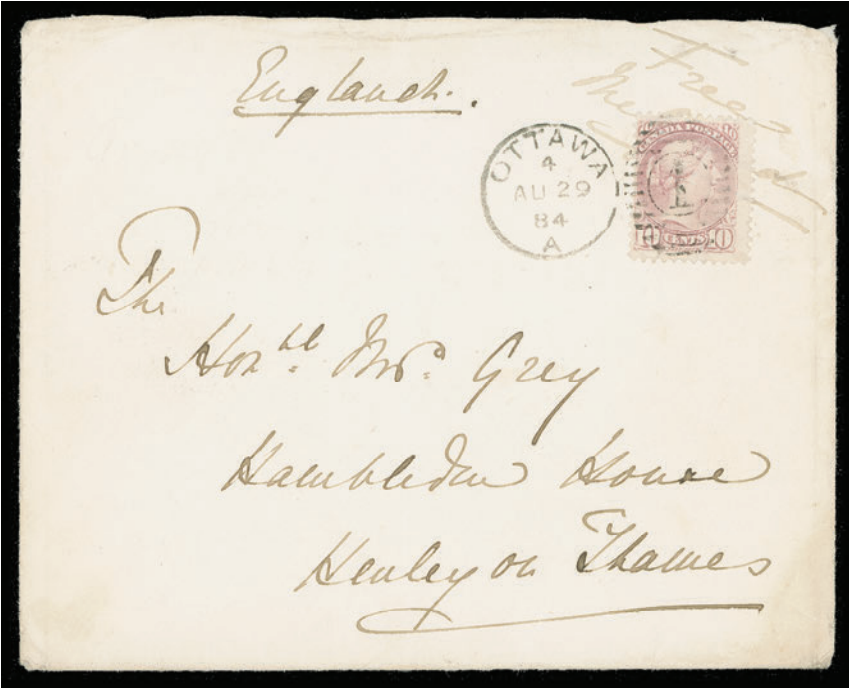 England.
Free
OTTAWA
4
AU 29
84
A
CANADA POSTAGE
10 CENTS 10
The
Honble. Mrs. Grey
Hambleden House
Henley on Thames